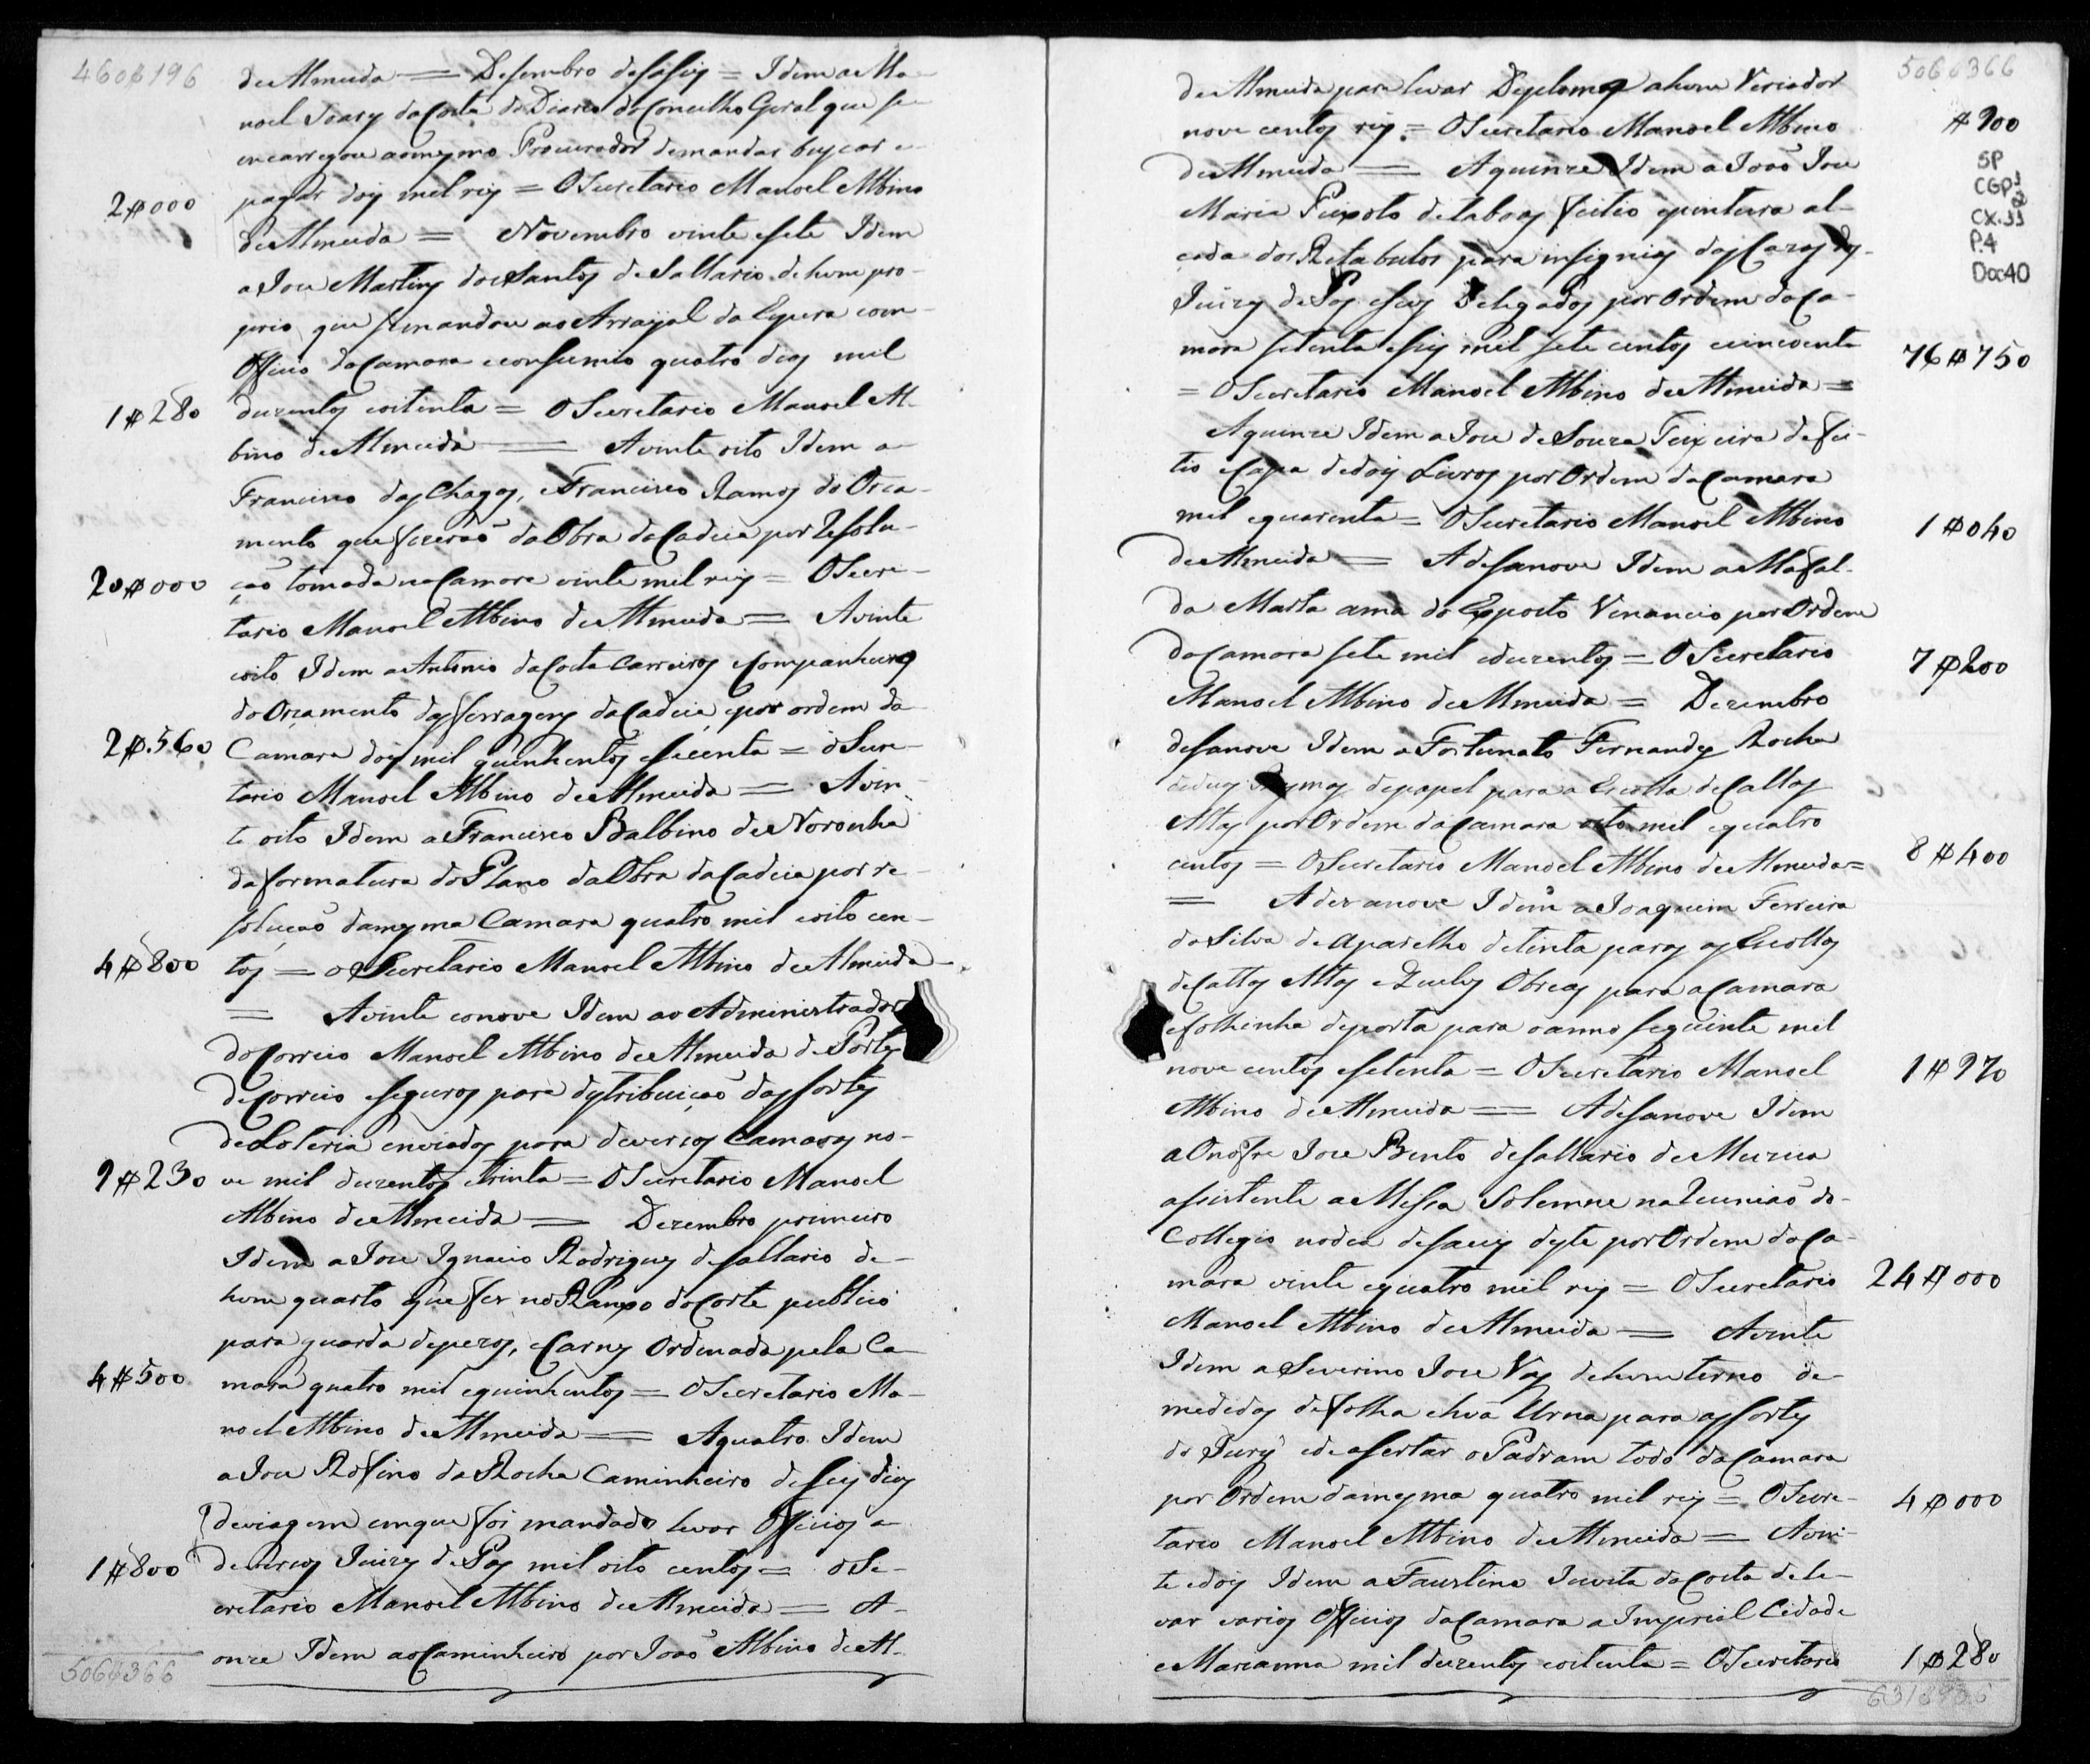 460$196
de Almeida = Desembro desaseis = Idem a Ma-
noel Soares da Costa do Diario do Concelho Geral que se
encarregou ao mesmo Procurador de mandar buscar e
2$000 pagar dois mil reis = O Secretario Manoel Albino
de Almeida = Novembro vinte e sete Idem
a Jose Martins dos Santos de Sallario de hum pro-
prio que se mandou ao Arraijal da Espera com
Officio da Camara e consumio quatro dias mil
1$280 duzentos e oitenta = O Secretario Manoel Al-
bino de Almeida = A vinte oito Idem a
Francisco das Chagas, e Francisco Ramos do Orca-
mento que fizerão da Obra da Cadeia por Resolu-
20$000 ção tomada na Camara vinte mil reis = O Secre-
tario Manoel Albino de Almeida = A vinte
oito Idem a Antonio da Costa Carneiros e Companheiros
do Orçamento das ferragens da Cadeia, e por ordem da
2$560 Camara dois mil quinhentos e secenta = o Secre-
tario Manoel Albino de Almeida = A vin-
te oito Idem a Francisco Balbino de Noronha
da formatura do Plano da Obra da Cadeia por re-
solução da mesma Camara quatro mil e oito cen-
4$800 tos = o Secretario Manoel Albino de Almeida
= A vinte e nove Idem ao Administrador
do Correio Manoel Albino de Almeida de Portes
de Correio e seguros para destribuição das sortes
de Loteria enviados para deversos Camaras no-
9$230 ve mil duzentos e trinta = O Secretario Manoel
Albino de Almeida = Dezembro primeiro
Idem a Jose Ignacio Rodrigues de sallario de
hum quarto que fes no Rampo do Corte publico
para guarda de pezos, e Carnes Ordenada pela Ca-
4$500 mara quatro mil e quinhentos = O Secretario Ma-
noel Albino de Almeida = A quatro Idem
a Jose Rofino da Rocha Caminheiro de seis dias
de viagem em que foi mandado levar Officios a
1$800 deversos Juizes de Pas mil oito centos = o Se-
cretario Manoel Albino de Almeida = A-
onze Idem ao Caminheiro por João Albino de Al-
506$366
506$366
de Almeida para levar Deploma a hum Veriador
$900 nove centos reis = O Secretario Manoel Albino
SP
CGP3
CX.33
P.4
Doc40
de Almeida = A quinze Idem a João Jose
Maria Peixoto de taboas feitio e pintura al-
cada dos Retabulos para insignias das Cazas dos
Juizes de Pas e seus Delegados por Ordem da Ca-
76$750 mara setenta e seis mil sete centos e cincoenta
= O Secretario Manoel Albino de Almeida =
A quinze Idem a Jose de Souza Teixeira de fei-
tio e Capa de dois Livros por Ordem da Camara
1$040 mil e quarenta = O Secretario Manoel Albino
de Almeida = A desanove Idem a Mafal-
da Marta ama do Exposto Venancio por Ordem
7$200 da Camara sete mil e duzentos = O Secretario
Manoel Albino de Almeida = Dezembro
desanove Idem a Fortunato Fernandes Rocha
de duas Resmas de papel para a Escolla de Cattas
Altas por Ordem da Camara oito mil e quatro
8$400 centos = O Secretario Manoel Albino de Almeida =
= A dezanove Idem a Joaquim Ferreira
da Silva de aparelho de tinta para as Escollas
de Cattas Altas e Obreas para a Camara
e folhinha de porta para o anno seguinte mil
1$970 nove centos e setenta = O Secretario Manoel
Albino de Almeida = A desanove Idem
a Onofre Jose Bento de sallario de Muzica
assistente a Messa Solemne na Reunião do
Collegio no dia desaseis deste por Ordem da Ca-
24$000 mara vinte e quatro mil reis = O Secretario
Manoel Albino de Almeida = A vinte
Idem a Severino Jose Vas de hum terno de
medidas de folha e hua Urna para as sortes
do Jury e de asertar o Padram todo da Camara
4$000 por Ordem da mesma quatro mil reis = O Secre-
tario Manoel Albino de Almeida = A vin-
te e dois Idem a Faustino da Costa de le-
var varios Officios da Camara a Imperial Cidade
1$280 e Marianna mil duzentos e oitenta = O Secretario